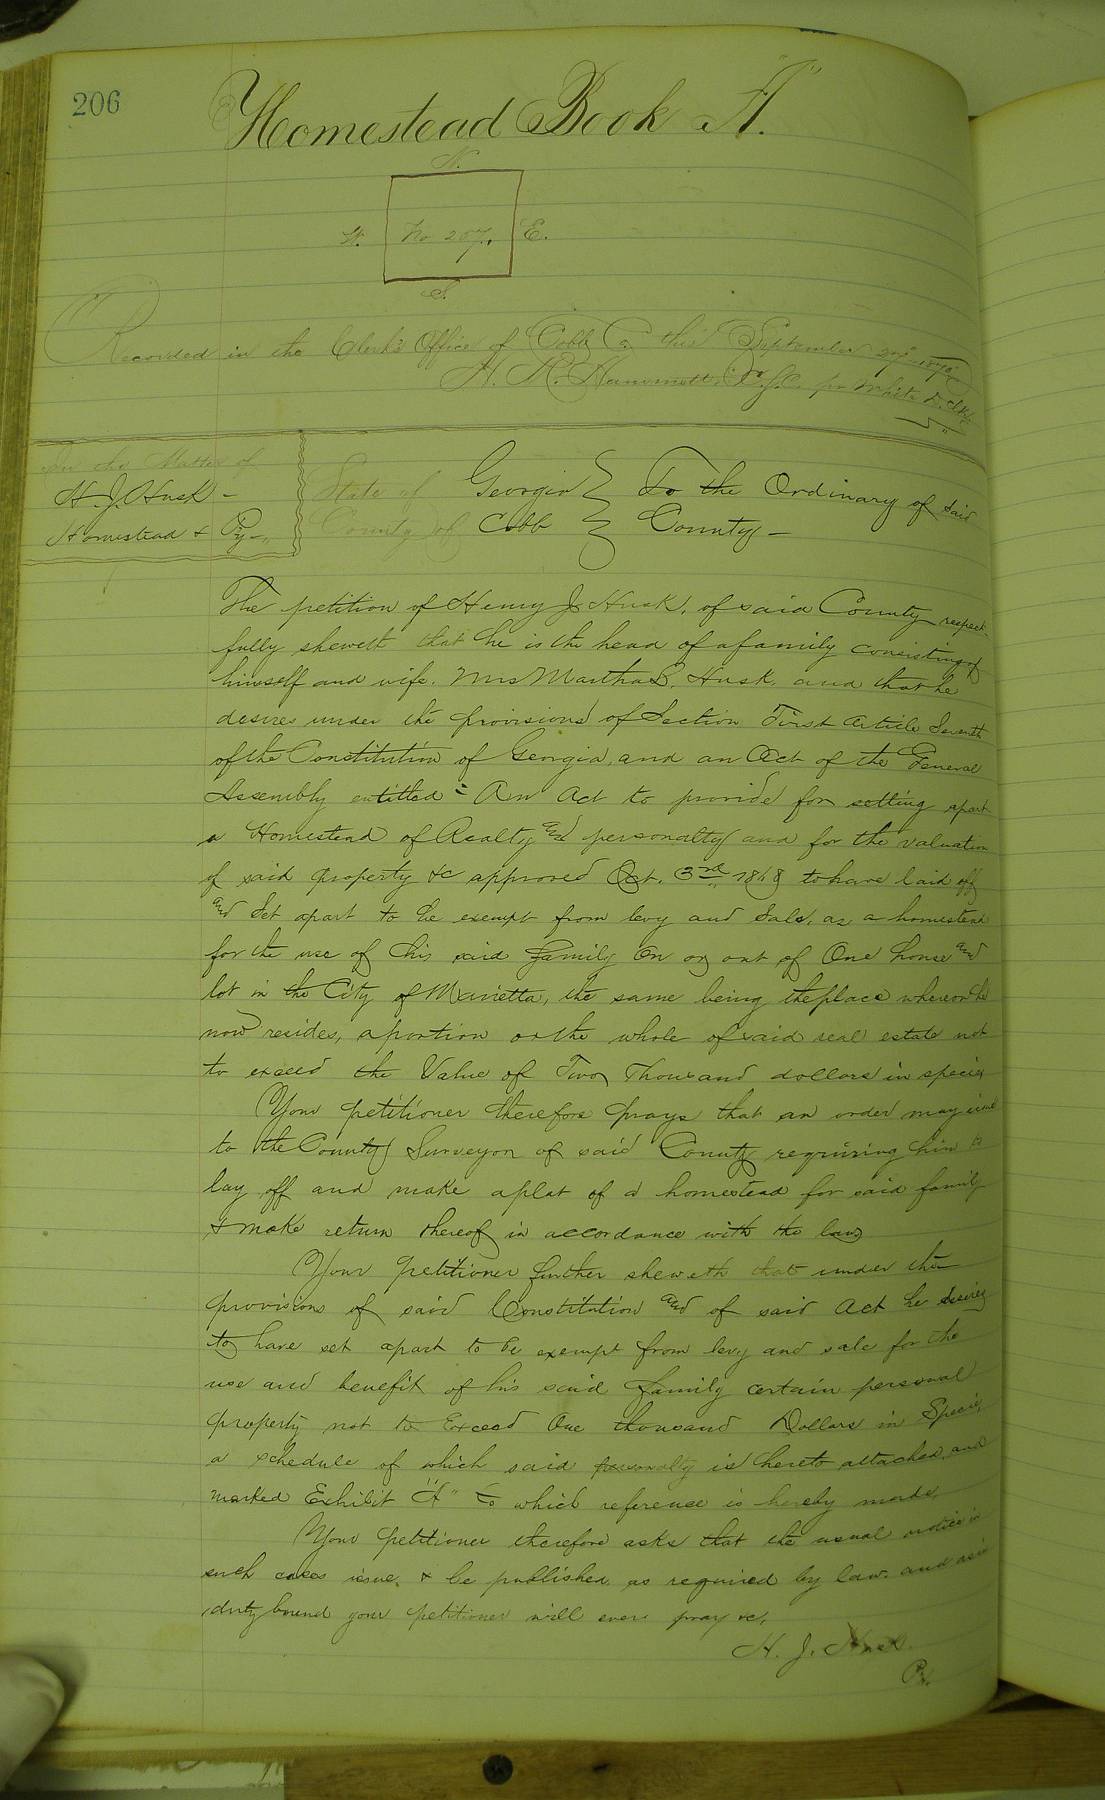 206
Homestead Book "A".
N.
W. No 207. E.
S.
Recorded in the Clerk's Office of Cobb Co this September 27th 1870
In the Matter of
H. J. Husk -
Homestead &
State of Georgia } To the Ordinary of said
County of Cobb } County -
The petition of Henry J. Husk, of said County respect-
fully sheweth that he is the head of a family consisting of
himself and wife. Mrs Martha L. Husk, and that he
desires under the provisions of Section First Article Seventh
of the Constitution of Georgia, and an Act of the General
Assembly entitled "An Act to provide for setting apart
a Homestead of Realty and personalty and for the valuation
of said property &c approved Oct. 3rd 1868 to have laid off
and Set apart to be exempt from levy and Sale, as a homestead
for the use of his said family on or out of One house and
lot in the City of Marietta, the same being the place whereon he
now resides, a portion or the whole of said real estate not
to exceed the Value of Two Thousand dollars in specie
Your petitioner therefore prays that an order may issue
to the County Surveyor of said County requiring him to
lay off and make a plat of a homestead for said family
& make return thereof in accordance with the law
Your Petitioner further sheweth that under the
provisions of said Constitution and of said Act he desires
to have set apart to be exempt from levy and sale for the
use and benefit of his said family certain personal
property not to Exceed One thousand Dollars in Specie,
a schedule of which said personalty is hereto attached, and
marked Exhibit "A" to which reference is hereby made.
Your petitioner therefore asks that the usual notice in
such cases issue, & be published as required by law. and as in
duty bound your petitioner will ever pray &c.
H. J. Husk.